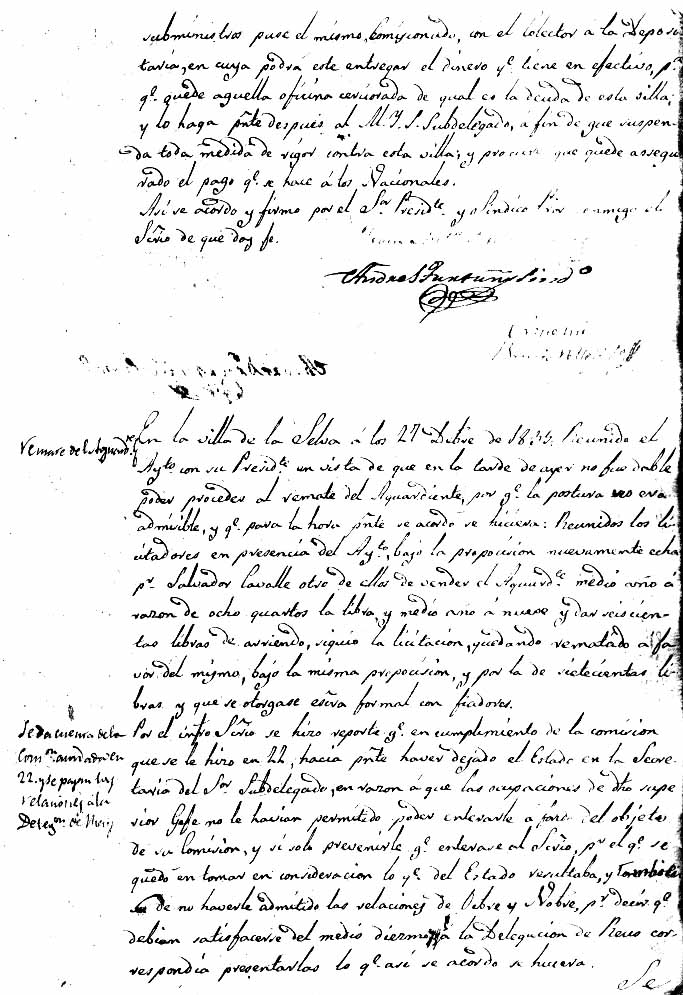 subministros pase el mismo Comisionado, con el Colector á la Deposi
taria, en cuya podrá este entregar el dinero qe. tiene en efectivo, pa.
qe. quede aquella oficina cerciorada de qual es la deuda de esta villa,
y lo haga pnte despues al M. Y. S. Subdelegado, á fin de que suspen-
da toda medida de rigor contra esta villa; y procure que quede assegu
rado el pago qe. se hace á los Nacionales.
Asi se acordo y firmo por el Sor. Presidte. y Sindico Pror. conmigo el
Sriño de que doy fe.
Andres
Remate del Aguardte.
En la villa de la Selva á los 27 Dibre de 1835. Reunido el
Ayto. con su Presidte. en vista de que en la tarde de ayer no fue dable
poder proceder al remate del Aguardiente, por qe. la postura no era
admisible, y qe. para la hora pnte se acordó se hiciera: Reunidos los li
citadores en presencia del Ayto., bajo la proposicion nuevamente echa
pr. Salvador Lavalle otro de ellos de vender el Aguardte. medio año á
razon de ocho quartos la libra, y medio año á nueve y dar seiscien-
tas libras de arriendo, siguio la licitacion, quedando rematado á fa
vor del mismo, bajo la misma proposicion, y por la de setecientas li
bras y que se otorgase esrva formal con fiadores.
Se da cuenta de la
Comon. mandada en
22. y se
relaciones á la
Delegon. de Reus
Por el infro Sriño se hizo reporte qe. en cumplimiento de la comicion
que se le hizo en 22, hacia pnte haver dejado el Estado en la Secre-
taria del Sor. Subdelegado, en razon á que las ocupaciones de dho supe
rior Gefe no le havian permitido poder enterarle á fons del objeto
de su Comision, y si solo prevenirle qe. enterase al Sriño, pr. el qe. se
quedó en tomar en consideracion lo qe. del Estado resultaba, y tambien
de no haverle admitido las relaciones de Octbre y Nobre, pr. decir qe.
debian satisfacerse del medio diezmo, y á la Delegacion de Reus cor-
respondia presentarlas lo qe. asi se acordo se hiciera.
Se